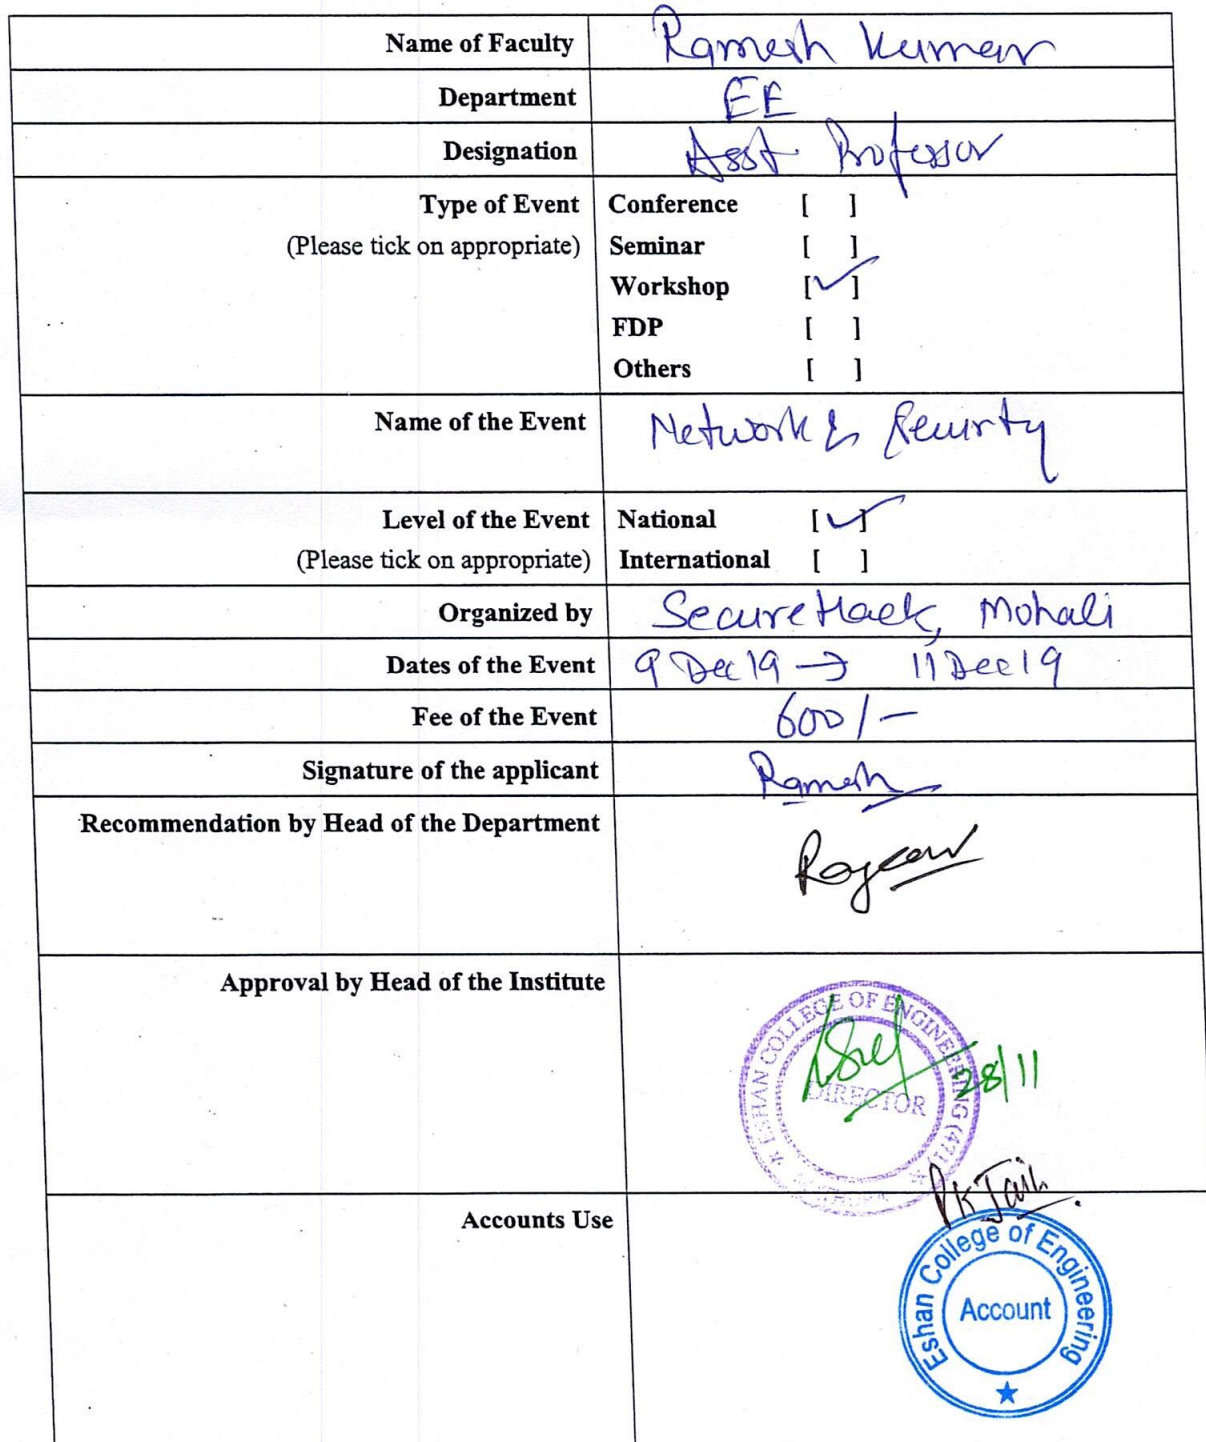 Name of Faculty Ramesh Kumar
Department EE
Designation Asst Professor
Type of Event Conference [ ]
(Please tick on appropriate) Seminar [ ]
Workshop [✓]
FDP [ ]
Others [ ]
Name of the Event Network & Security
Level of the Event National [✓]
(Please tick on appropriate) International [ ]
Organized by Secure Hack, Mohali
Dates of the Event 9 Dec 19 → 11 Dec 19
Fee of the Event 600/-
Signature of the applicant Ramesh
Recommendation by Head of the Department
Approval by Head of the Institute
ESHAN COLLEGE OF ENGINEERING (471)
DIRECTOR
28/11
PK Jain
Accounts Use
Eshan College of Engineering
Account